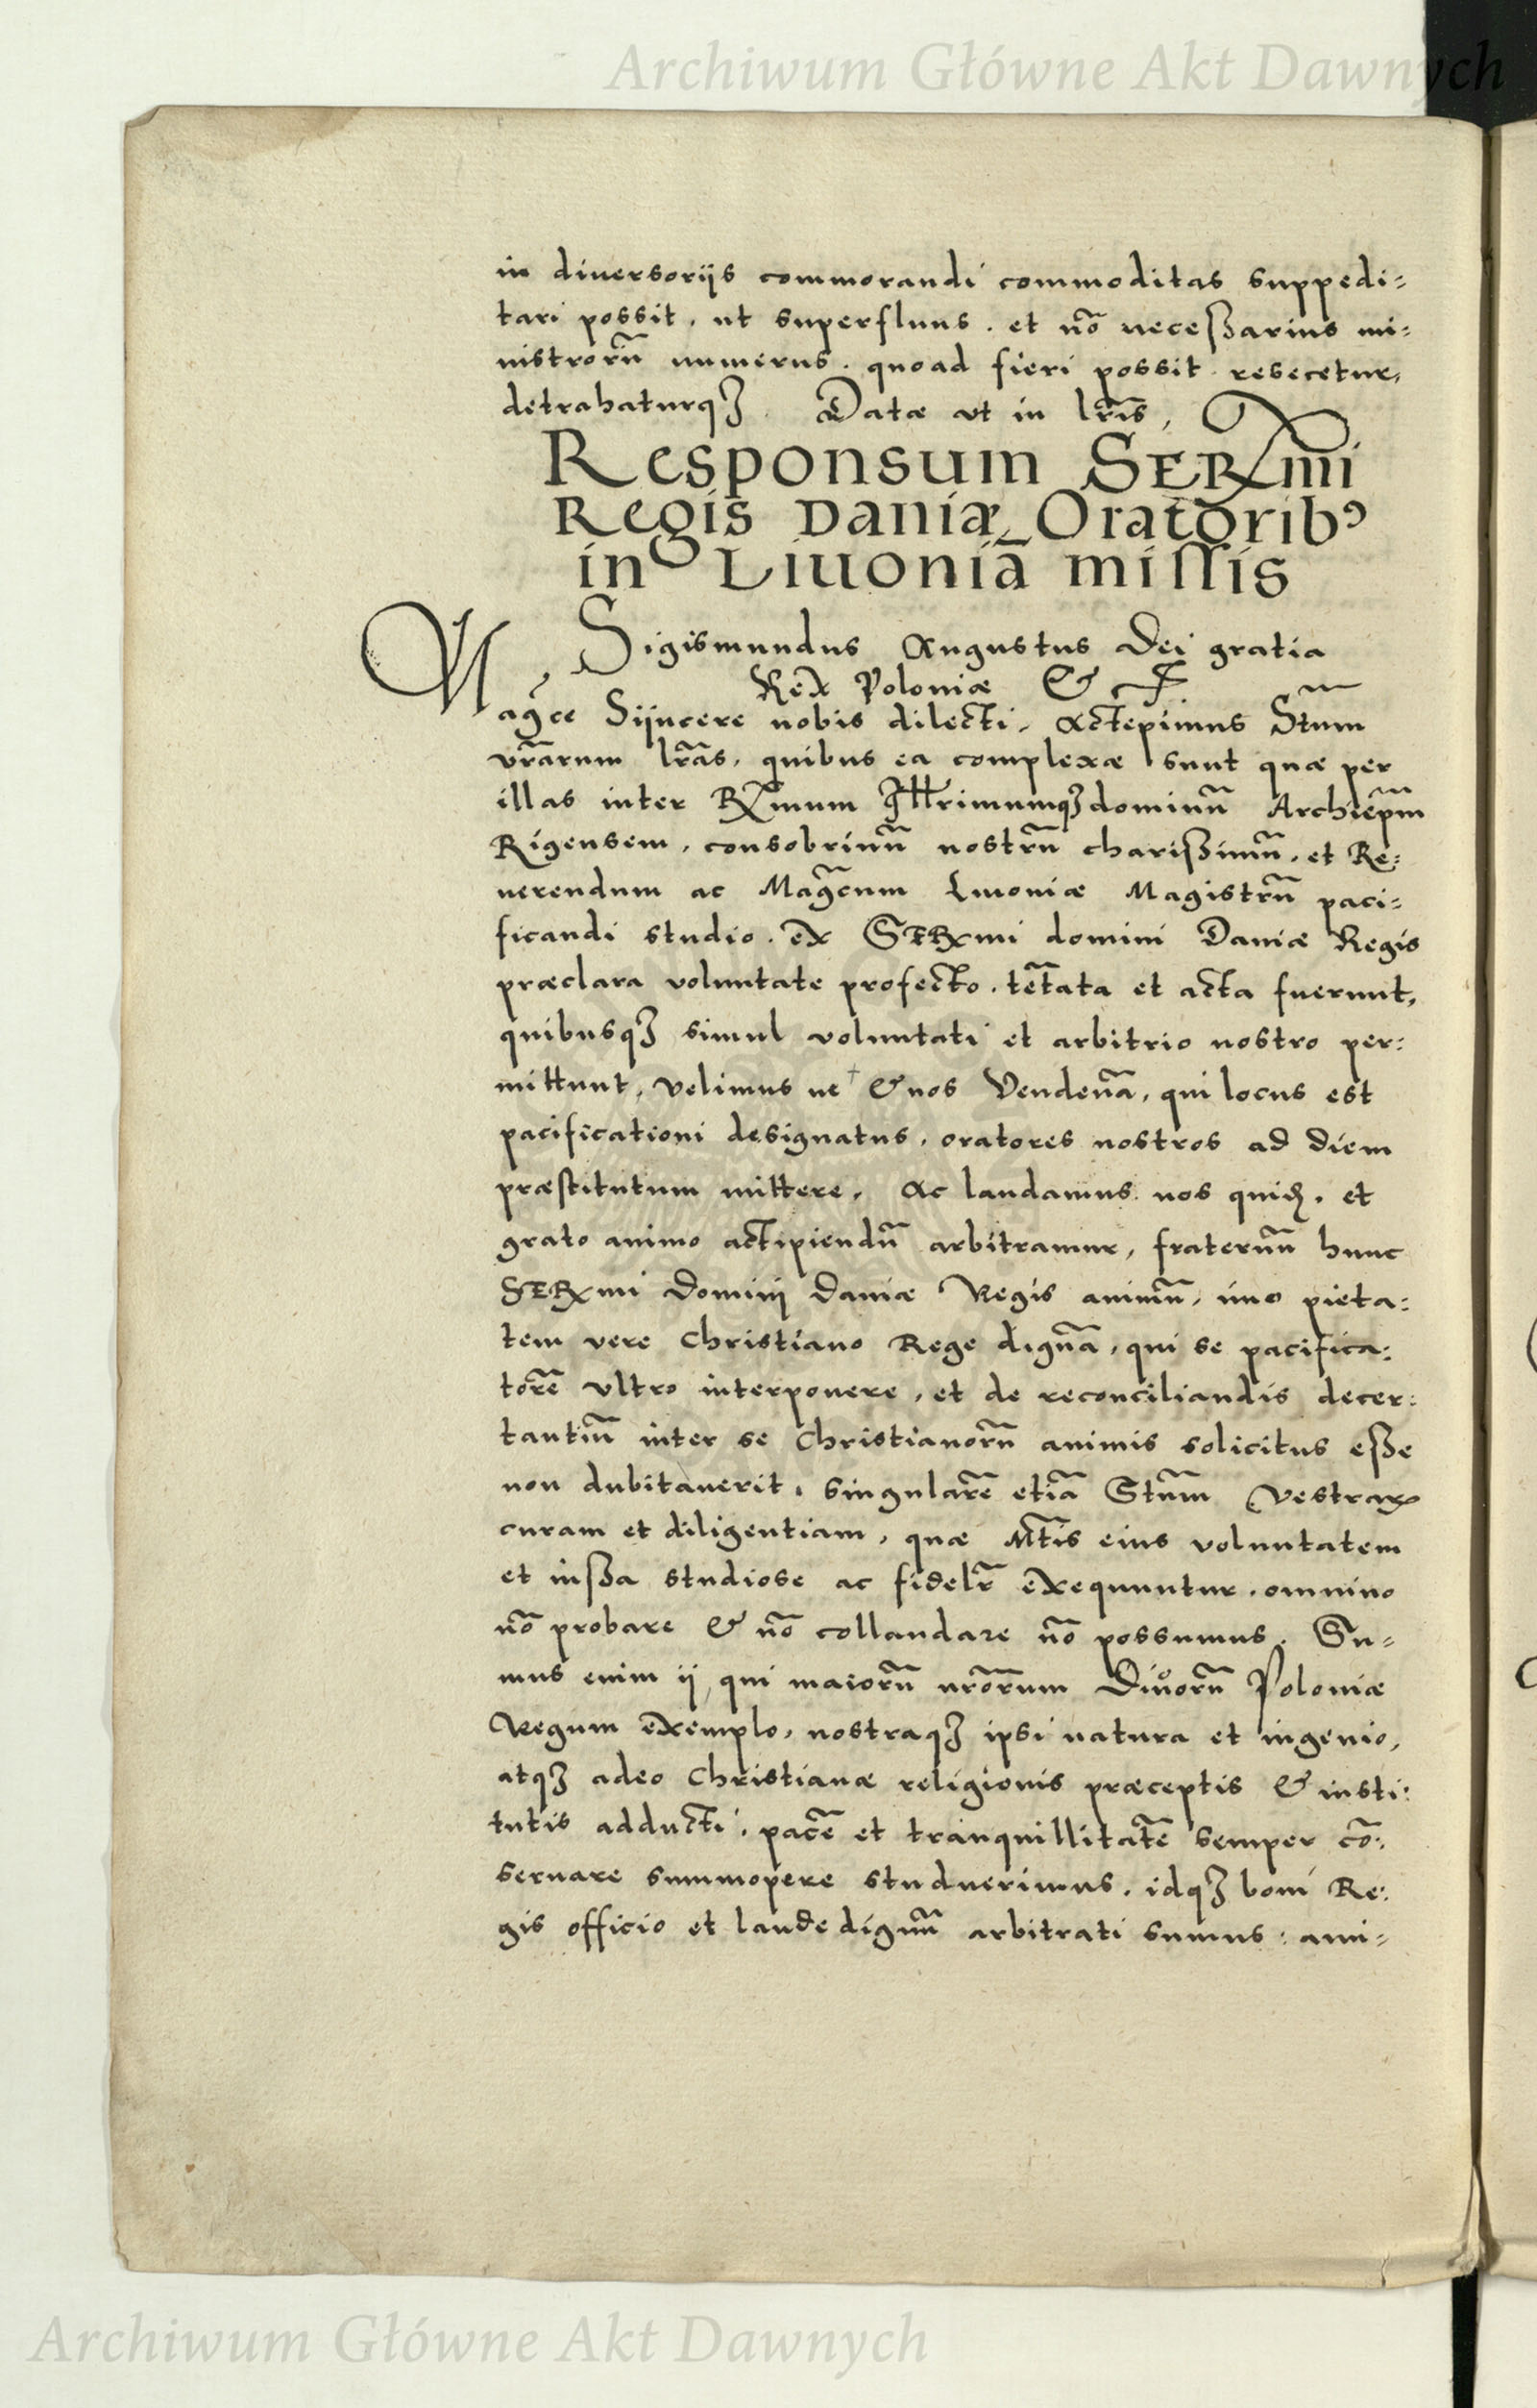 Archiwum Główne Akt Dawnych
in diuersorijs commorandi commoditas suppedi=
tari possit, ut superfluus. et nõ neceßarius mi=
nistrorũ numerus. quoad fieri possit resecetur,
detrahaturqꝫ. Datæ vt in lr̃is,
Responsum SERmi
Regis Daniæ Oratoribꝰ
in Liuoniã missis
Sigismundus Augustus Dei gratia
Rex Poloniæ &
Mag̃ce Sijncere nobis dilecti, Accepimus Stum
vr̃arum lr̃as, quibus ea complexæ sunt quæ per
illas inter Rmum Illrimumqꝫ dominũ Archiep̃m
Rigensem, consobrinũ nostrũ charißimũ, et Re=
uerendum ac Mag̃cum Liuoniæ Magistrũ paci=
ficandi studio. ex SERmi domini Daniæ Regis
præclara voluntate profecto, tẽtata et acta fuerunt,
quibusqꝫ simul voluntati et arbitrio nostro per=
mittunt, velimus ne & nos Vendenã, qui locus est
pacificationi designatus, oratores nostros ad diem
præstitutum mittere, Ac laudamus nos quidẽ, et
grato animo accipiendũ arbitramur, fraternũ hunc
SERmi Dominj Daniæ Regis animũ, imo pieta=
tem vere Christiano Rege dignã, qui se pacifica=
torẽ vltro interponere, et de reconciliandis decer=
tantiũ inter se Christianorũ animis solicitus eße
non dubitauerit, singularẽ etiã Stum Vestraꝝ
curam et diligentiam, quæ Mt̃is eius voluntatem
et iußa studiose ac fidelr̃ exequuntur. omnino
nõ probare & nõ collaudare nõ possumus. Su=
mus enim ij, qui maiorũ nr̃orum Diuorũ Poloniæ
Regum exemplo, nostraqꝫ ipsi natura et ingenio,
atqꝫ adeo Christianæ religionis præceptis & insti=
tutis adducti, pacẽ et tranquillitatẽ semper cõ=
seruare summopere studuerimus, idqꝫ boni Re=
gis officio et laude dignũ arbitrati sumus: ani=
Archiwum Główne Akt Dawnych